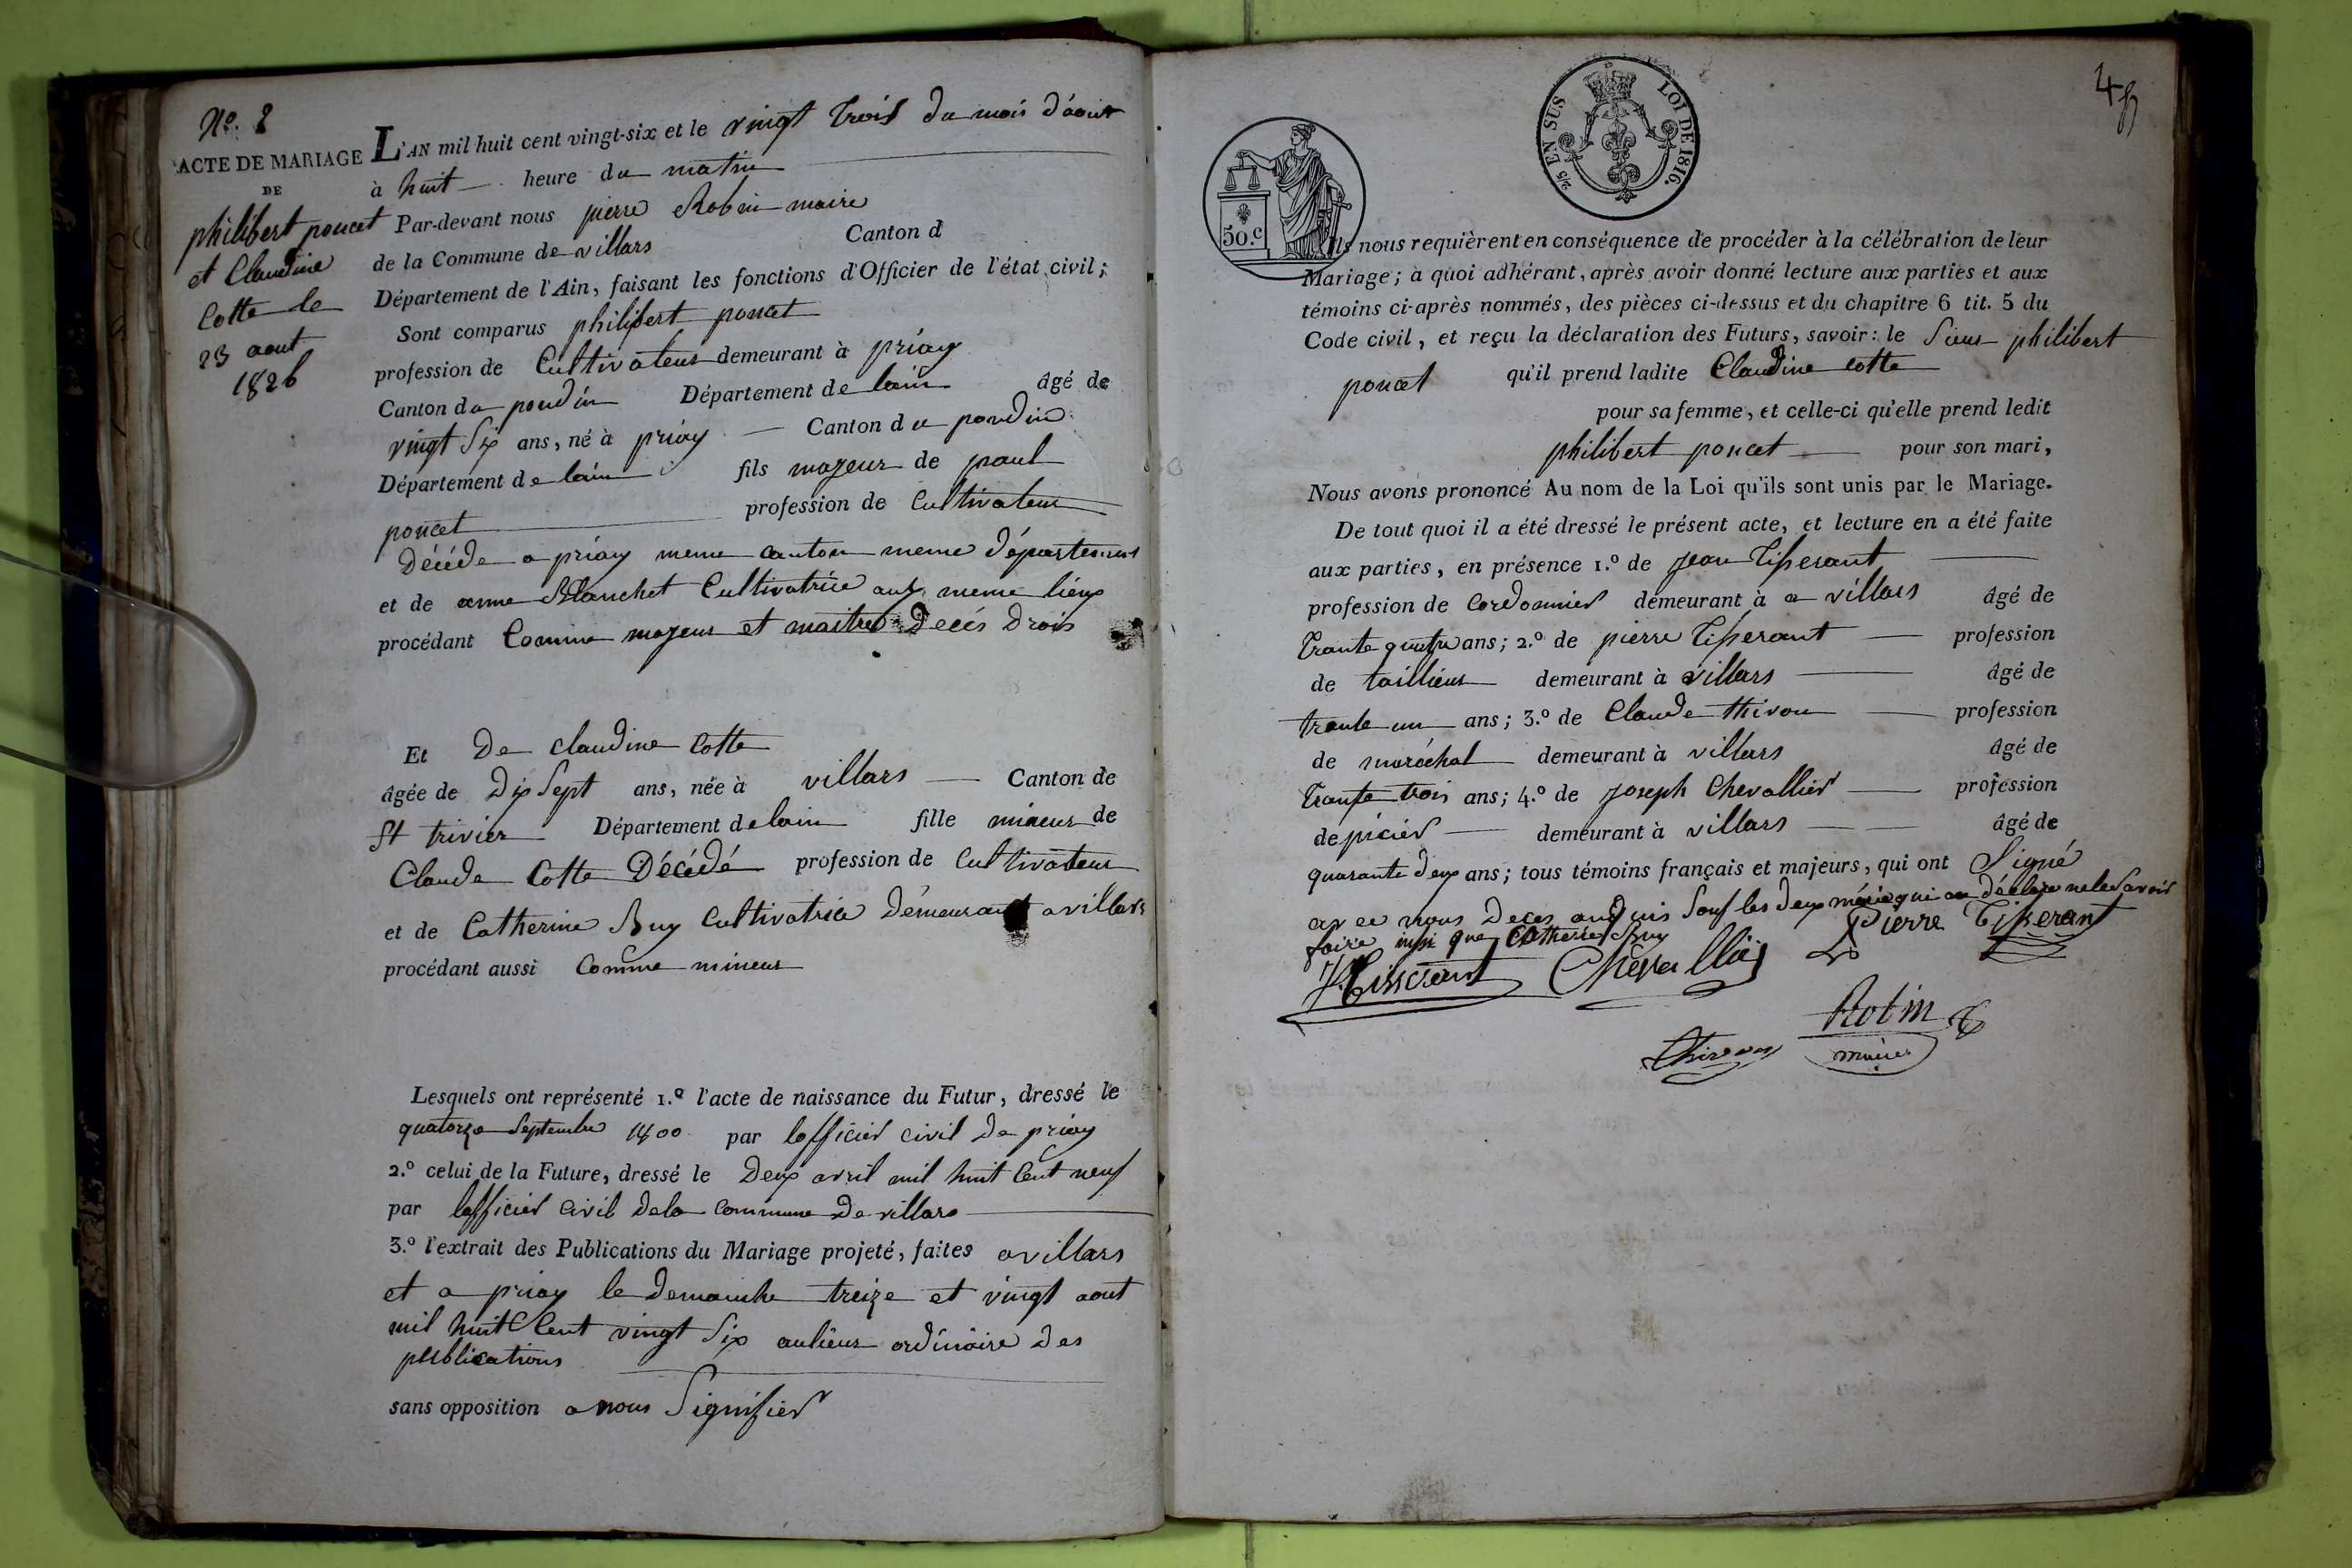 No. 8
ACTE DE MARIAGE
DE
philibert poncet
et Claudine
Cotte le
23 aout
1826
L'AN mil huit cent vingt-six et le vingt trois du mois d'aout
à huit heure du matin
Par-devant nous pierre Robin maire
de la Commune de villars Canton d
Département de l'Ain, faisant les fonctions d'Officier de l'état civil;
Sont comparus philibert poncet
profession de Cultivateur demeurant à priay
Canton du pondin Département de lain âgé de
vingt Six ans, né à priay Canton du pondin
Département de lain fils majeur de paul
poncet profession de Cultivateur
Décédé a priay meme canton meme département
et de anne Blanchet Cultivatrice aux meme lieux
procédant Comme majeur et maitre Decés Drois
Et De claudine Cotte
âgée de Dix Sept ans, née à villars Canton de
St trivier Département delain fille mineur de
Claude Cotte Décédé profession de Cultivateur
et de Catherine Buy Cultivatrice Démeurant avillars
procédant aussi Comme mineur
Lesquels ont représenté 1.º l'acte de naissance du Futur, dressé le
quatorze Septembre 1800 par lofficier civil De priay
2.º celui de la Future, dressé le Deux avril mil huit Cent neuf
par lofficier civil Dela commune De villars
3.º l'extrait des Publications du Mariage projeté, faites avillars
et a priay le Demanche treize et vingt aout
mil huit Cent vingt Six aulieux ordinaire Des
publications
sans opposition anous Signifier
4
50.c
2/5 EN SUS LOI DE 1816.
Ils nous requièrent en conséquence de procéder à la célébration de leur
Mariage; à quoi adhérant, après avoir donné lecture aux parties et aux
témoins ci-après nommés, des pièces ci-dessus et du chapitre 6 tit. 5 du
Code civil, et reçu la déclaration des Futurs, savoir: le Sieur philibert
poncet qu'il prend ladite Claudine cotte
pour sa femme, et celle-ci qu'elle prend ledit
philibert poncet pour son mari,
Nous avons prononcé Au nom de la Loi qu'ils sont unis par le Mariage.
De tout quoi il a été dressé le présent acte, et lecture en a été faite
aux parties, en présence 1.º de jean Tisserant
profession de Cordonnier demeurant à a villars âgé de
Trante quatre ans; 2.º de pierre Tisserant profession
de taillieur demeurant à villars âgé de
trante un ans; 3.º de Claude thivon profession
de maréchal demeurant à villars âgé de
Trante trois ans; 4.º de joseph Chevallier profession
depicier demeurant à villars âgé de
quarante deux ans; tous témoins français et majeurs, qui ont Signé
avec nous Deces Souf les Deux mariés qui on Déclaré nele Savoir
faire insi que Catherine Buy
Pierre Tisserant
J Tisserant Chevallier
Robin
Thivon maire